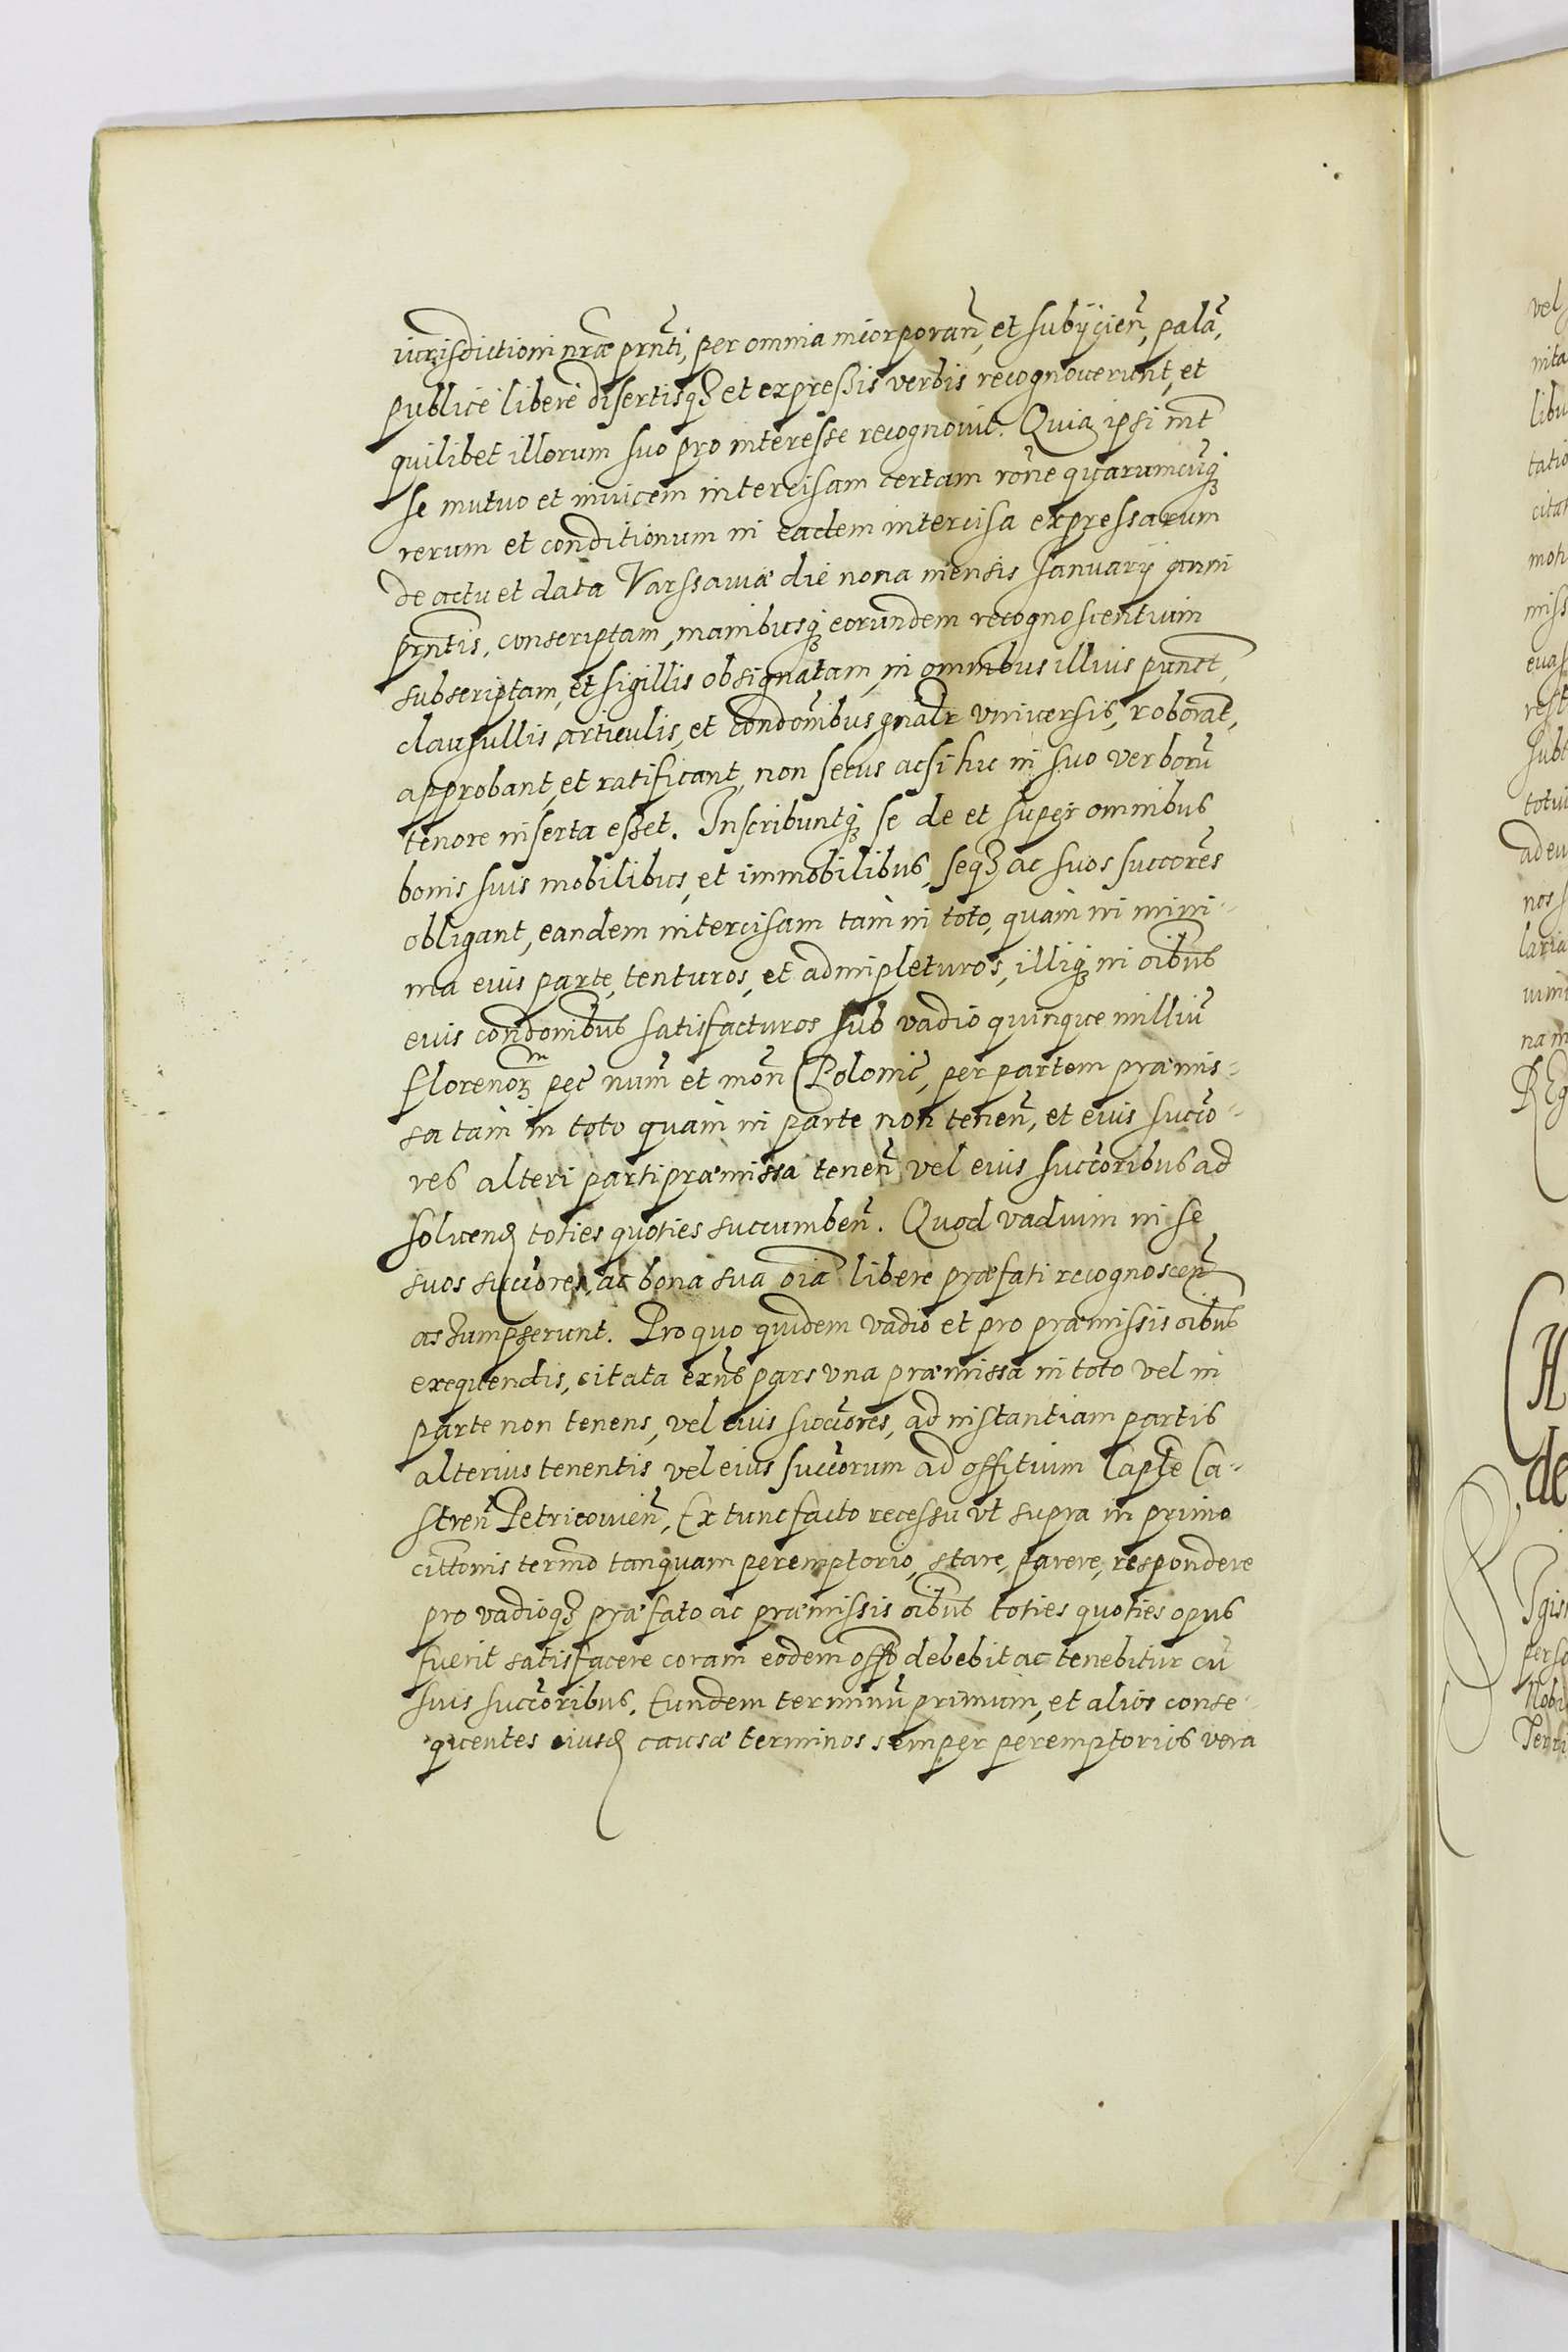 iurisdictioni nræ prnti, per omnia incorporan, et subÿcien, palã,
publice libere disertisq3 et expressis verbis recognoverunt, et
quilibet illorum suo pro interesse recognovit. Quia ipsi int
se mutuo et invicem intercisam certam rone quarumcuq3
rerum et conditionum in eadem intercisa expressarum
de actu et data Varssaviæ die nona mensis Januarÿ anni
prntis, conscriptam, manibusq3 eorundem recognoscentium
subscriptam, et sigillis obsignatam, in omnibus illius punct,
clausullis, articulis, et condonibus gnalr universis, roborat,
approbant, et ratificant, non secus acsi hic in suo verborũ
tenore inserta esset. Inscribuntq3 se de et super omnibus
bonis suis mobilibus, et immobilibus, seq3 ac suos succores
obligant, eandem intercisam tam in toto, quam in mini-
ma eius parte, tenturos, et adimpleturos, illiq3 in oibus
eius condonibus satisfacturos sub vadio quinque milliũ
florenorum pec num et mon Polonic, per partem præmis-
sa tam in toto quam in parte non tenen, et eius succo-
res alteri parti præmissa tenen vel eius succoribus ad
solvend toties quoties succumben. Quod vadium in se
suos succores, ac bona sua oia libere præfati recognoscen
assumpserunt. Pro quo quidem vadio et pro præmissis oibus
exequendis, citata exns pars una præmissa in toto vel in
parte non tenens, vel eius succores, ad instantiam partis
alterius tenentis, vel eius succorum ad offitium Caple Ca-
stren Petricovien, Ex tunc facto recessu ut supra in primo
cittonis termo tanquam peremptorio, stare, parere, respondere
pro vadioq3 præfato ac præmissis oibus toties quoties opus
fuerit satisfacere coram eodem offo debebit ac tenebitur cũ
suis succoribus. Eundem terminũ primum, et alios conse-
quentes eiusd causæ terminos semper peremptorios vera